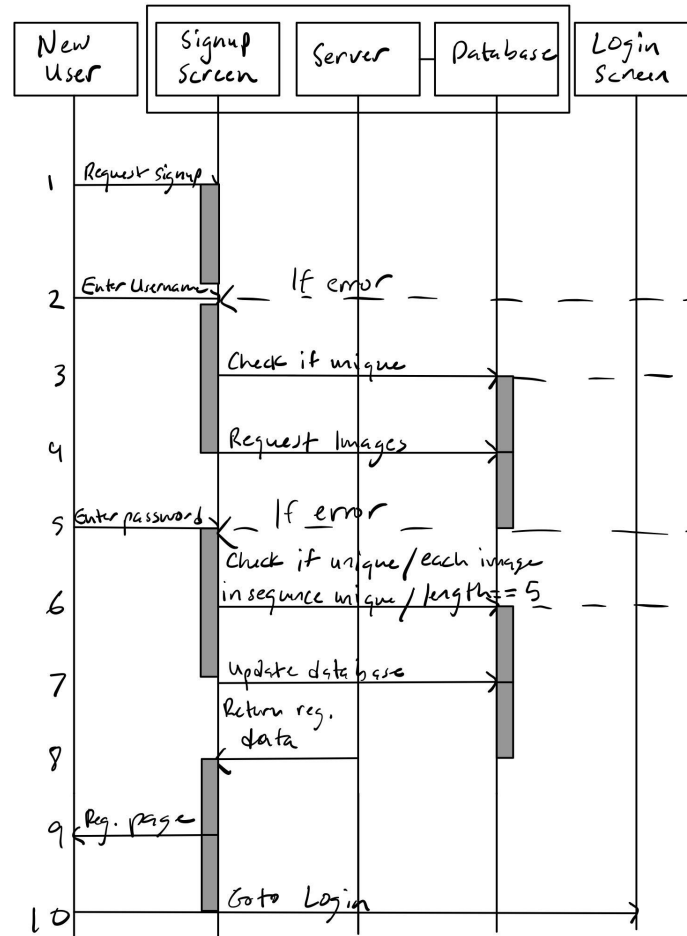 New
User
Signup
Screen
Server
Database
Login
Screen
1
Request signup
2
Enter Username
If error
3
Check if unique
4
Request Images
5
Enter password
If error
Check if unique/each image
6
in sequence unique/length==5
7
Update database
Return reg.
data
8
9
Reg. page
10
Goto Login